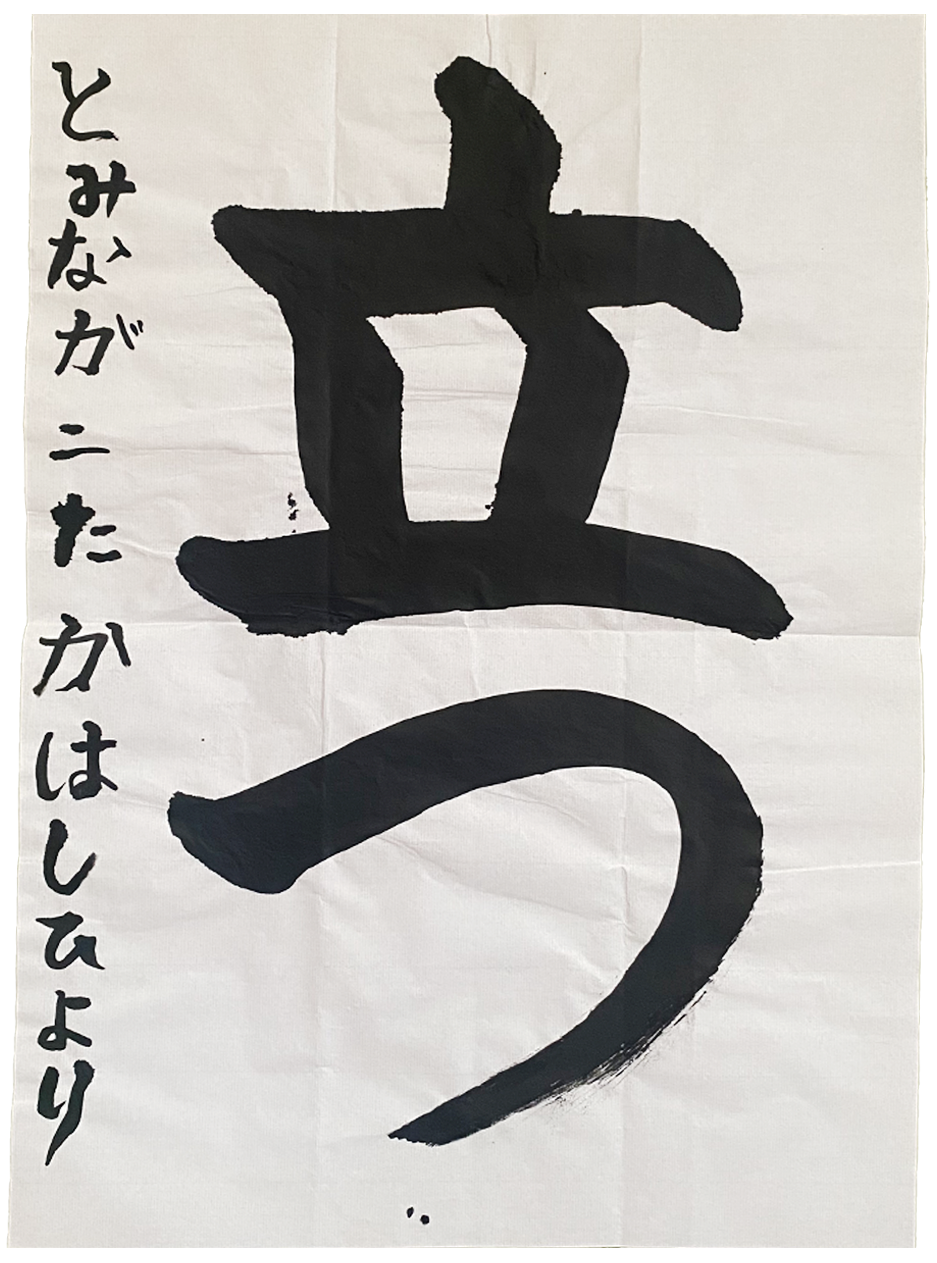 立つ
とみなが二たかはしひより